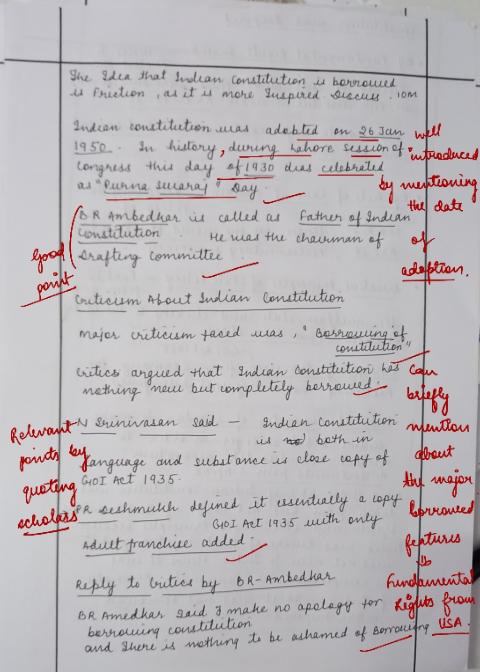 The Idea that Indian Constitution is borrowed
is Friction, as it is more Inspired Discuss. 10M
Indian constitution was adopted on 26 Jan
1950. In history, during Lahore Session of
Congress this day of 1930 was celebrated
as "Purna Swaraj" Day.
well
introduced
by mentioning
the date
of
adoption.
BR Ambedkar is called as Father of Indian
Constitution. He was the chairman of
Drafting Committee
Good
point
Criticism About Indian Constitution
Major criticism faced was, "Borrowing of
constitution"
Critics argued that Indian Constitution has
nothing new but completely borrowed.
can
briefly
mention
about
the major
borrowed
features
Fundamental
Rights from
USA.
N Srinivasan Said - Indian Constitution
is both in
language and substance is close copy of
GOI Act 1935.
Relevant
points by
quoting
scholars
PR Deshmukh defined it essentially a copy
GOI Act 1935 with only
Adult franchise added.
Reply to Critics by BR-Ambedkar
BR Amedkar Said I make no apology for
borrowing constitution
and There is nothing to be ashamed of Borrowing